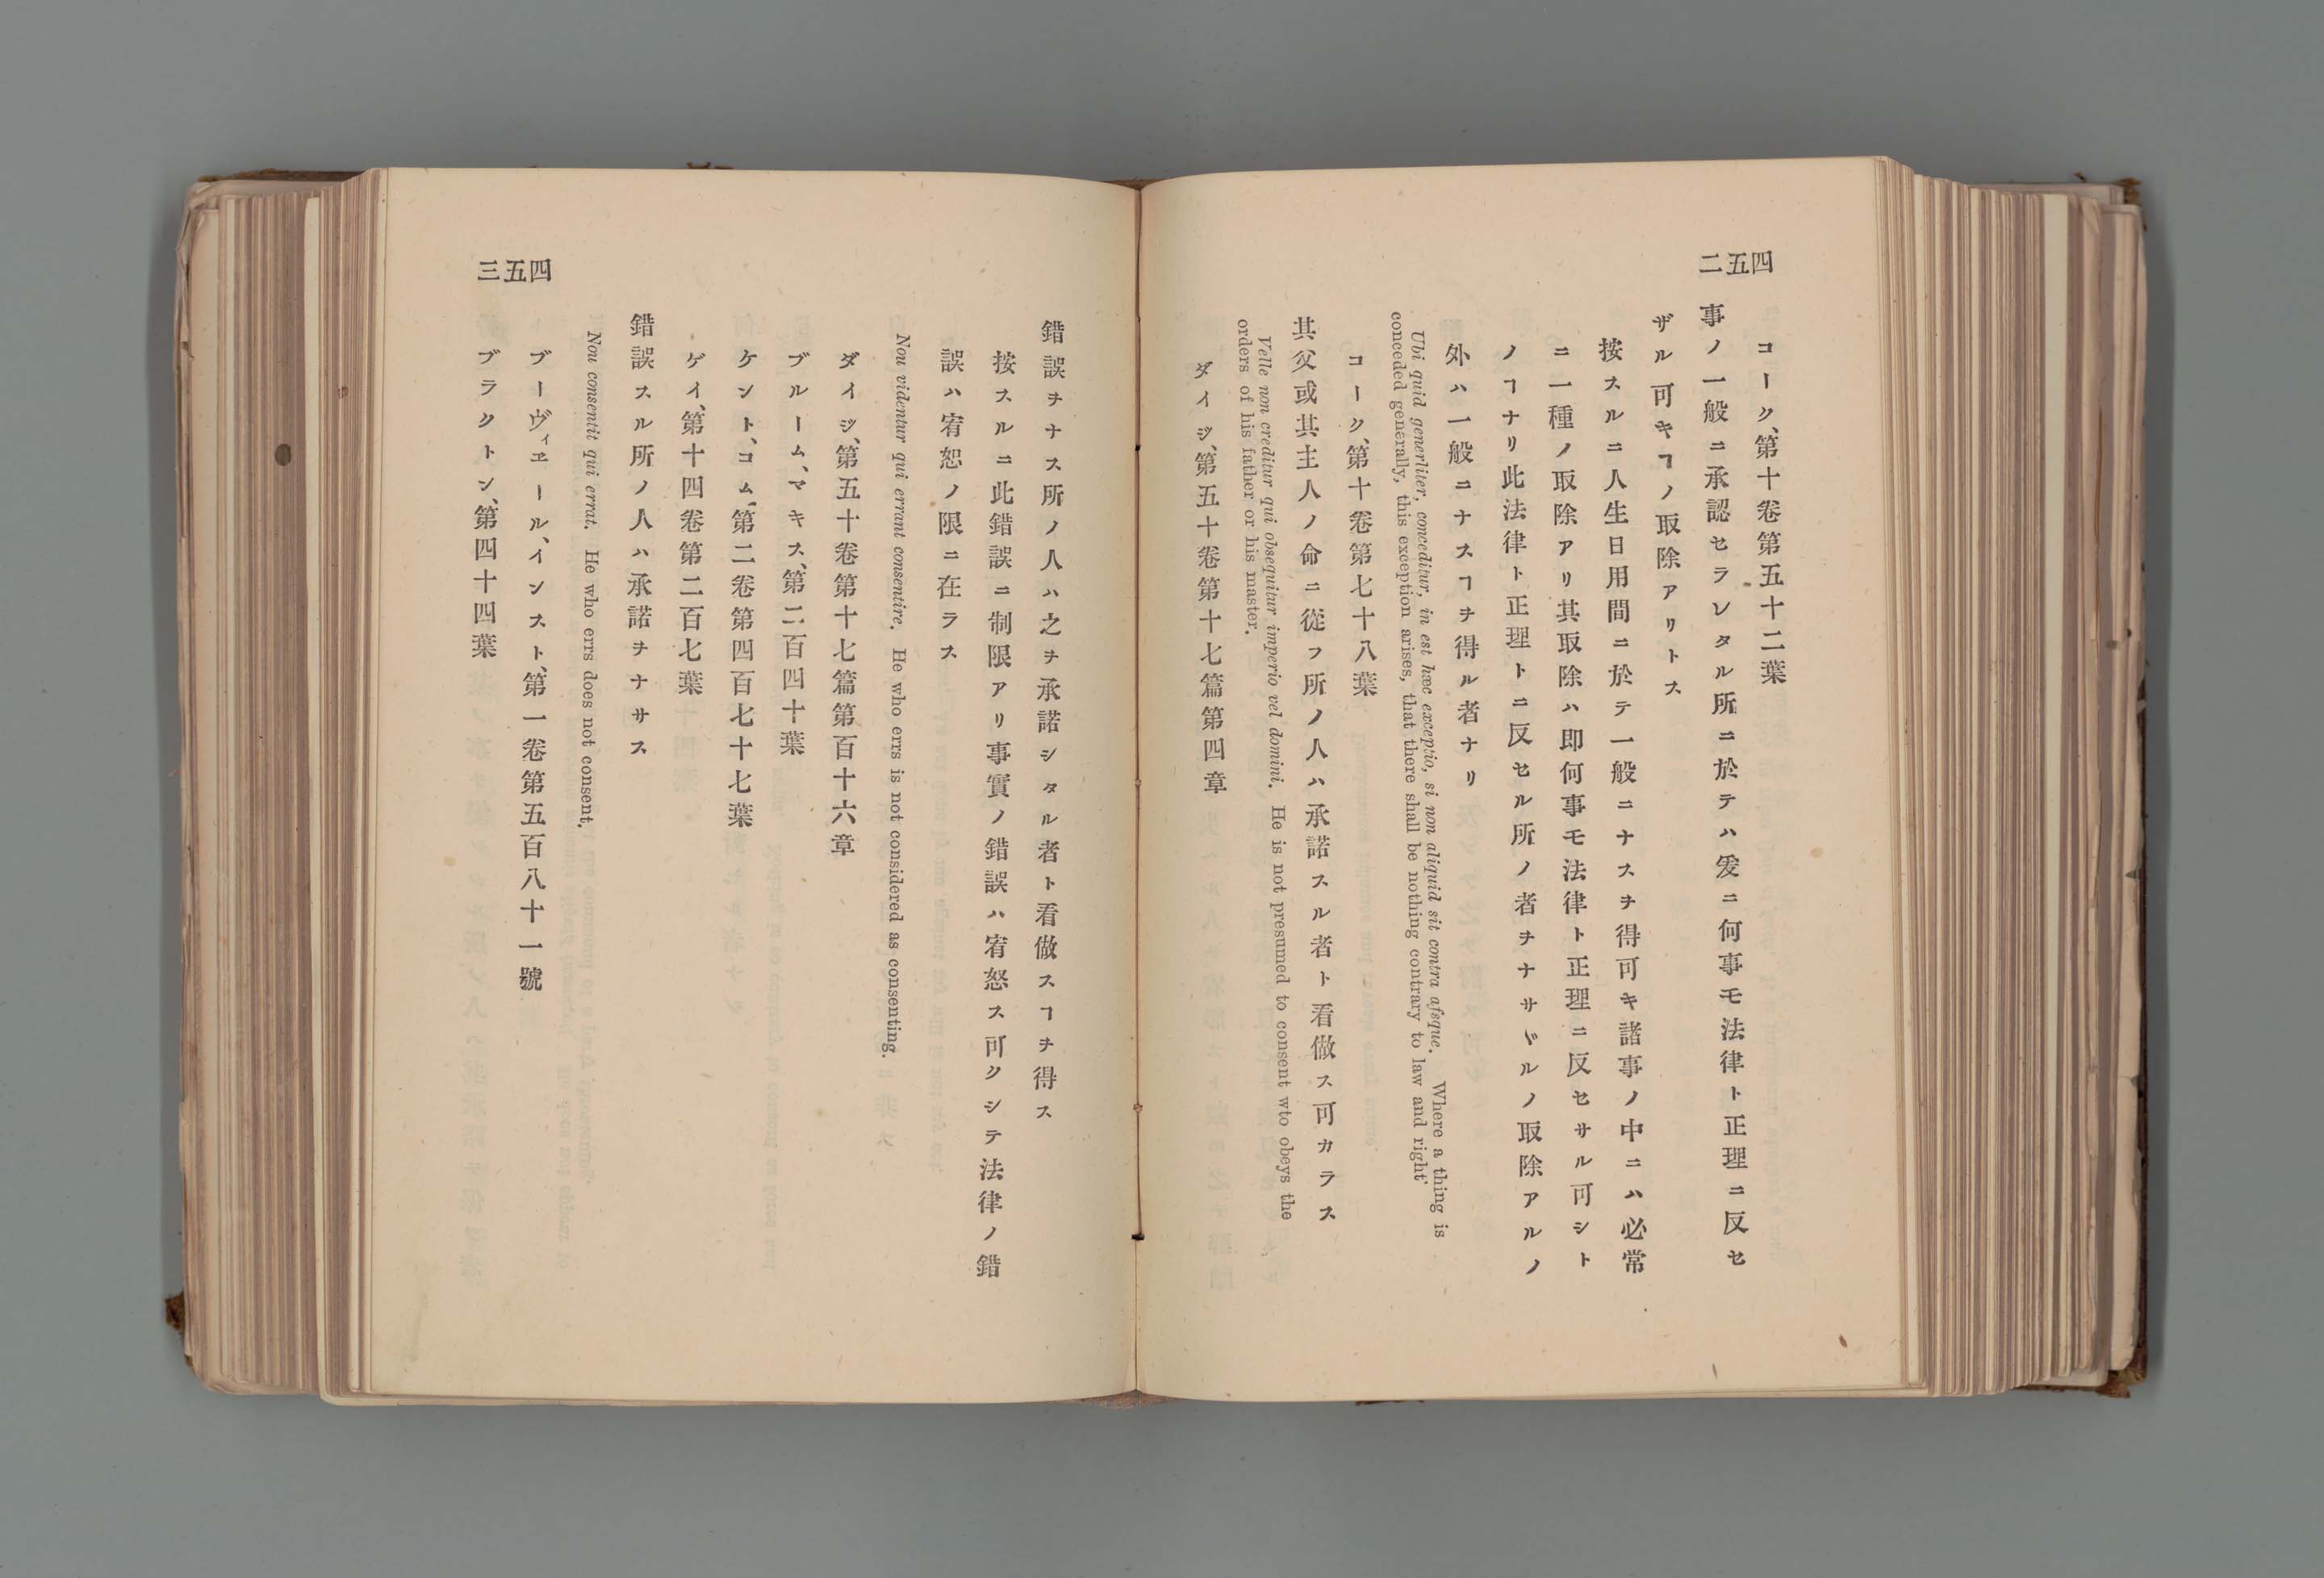 四五二
コーク、第十卷第五十二葉
事ノ一般ニ承認セラレタル所ニ於テハ爰ニ何事モ法律ト正理ニ反セ
ザル可キヿノ取除アリトス
按スルニ人生日用間ニ於テ一般ニナスヲ得可キ諸事ノ中ニハ必常
ニ一種ノ取除アリ其取除ハ即何事モ法律ト正理ニ反セサル可シト
ノヿナリ此法律ト正理トニ反セル所ノ者ヲナサヾルノ取除アルノ
外ハ一般ニナスヿヲ得ル者ナリ
Ubi quid generliter, conceditur, in est hæc exceptio, si non aliquid sit contra afsque. Where a thing is
conceded generally, this exception arises, that there shall be nothing contrary to law and right
コーク、第十卷第七十八葉
其父或其主人ノ命ニ從フ所ノ人ハ承諾スル者ト看做ス可カラス
Velle non creditur qui obsequitur imperio vel domini. He is not presumed to consent wto obeys the
orders of his father or his master.
ダイジ、第五十卷第十七篇第四章
錯誤ヲナス所ノ人ハ之ヲ承諾シタル者ト看做スヿヲ得ス
按スルニ此錯誤ニ制限アリ事實ノ錯誤ハ宥怒ス可クシテ法律ノ錯
誤ハ宥恕ノ限ニ在ラス
Nou videntur qui errant consentire. He who errs is not considered as consenting.
ダイジ、第五十卷第十七篇第百十六章
ブルーム、マキス、第二百四十葉
ケント、コム、第二卷第四百七十七葉
ゲイ、第十四卷第二百七葉
錯誤スル所ノ人ハ承諾ヲナサス
Nou consentit qui errat. He who errs does not consent.
ブーヴィエール、インスト、第一卷第五百八十一號
ブラクトン、第四十四葉
四五三